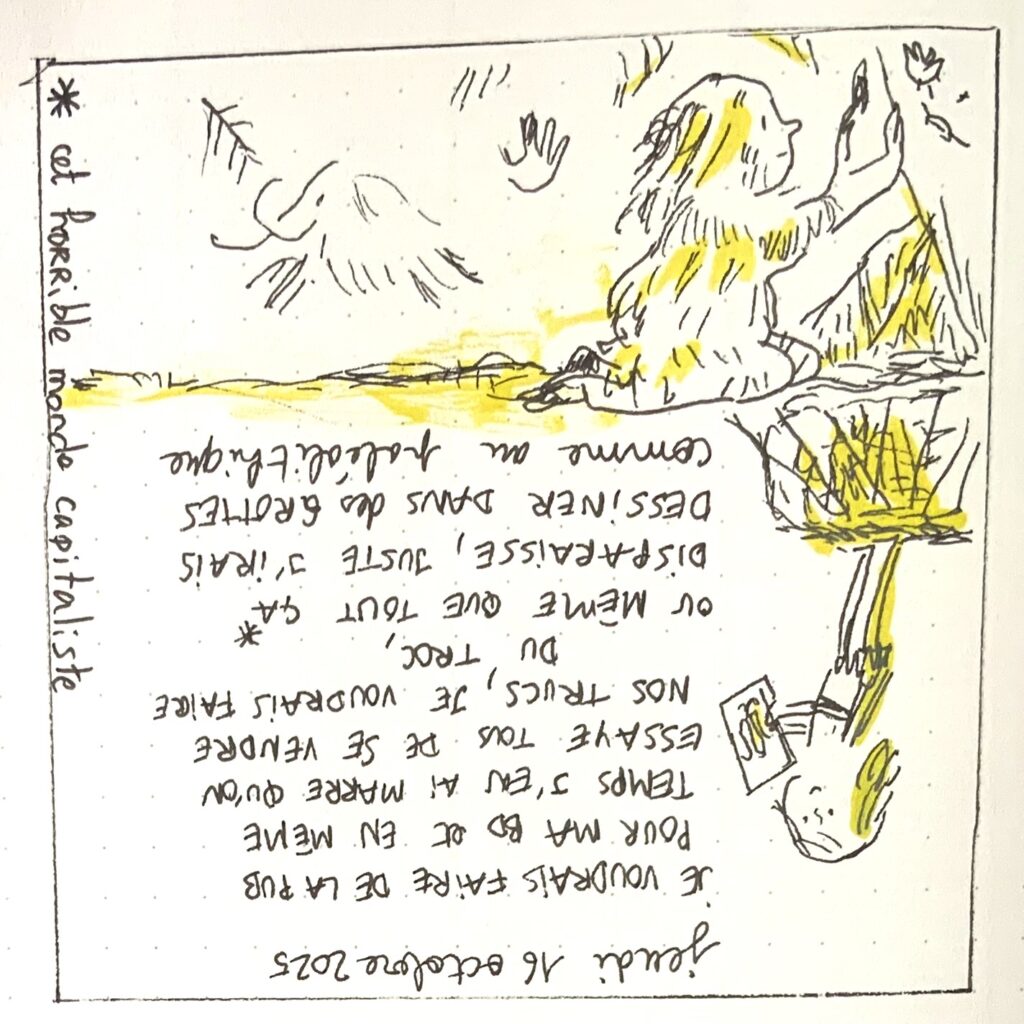 jeudi 16 octobre 2025
JE VOUDRAIS FAIRE DE LA PUB
POUR MA BD et EN MÊME
TEMPS J'EN AI MARRE QU'ON
ESSAYE TOUS DE SE VENDRE
NOS TRUCS, JE VOUDRAIS FAIRE
DU TROC,
OU MÊME QUE TOUT ÇA *
DISPARAISSE, JUSTE J'IRAIS
DESSINER DANS des GROTTES
comme au paléolithique
* cet horrible monde capitaliste